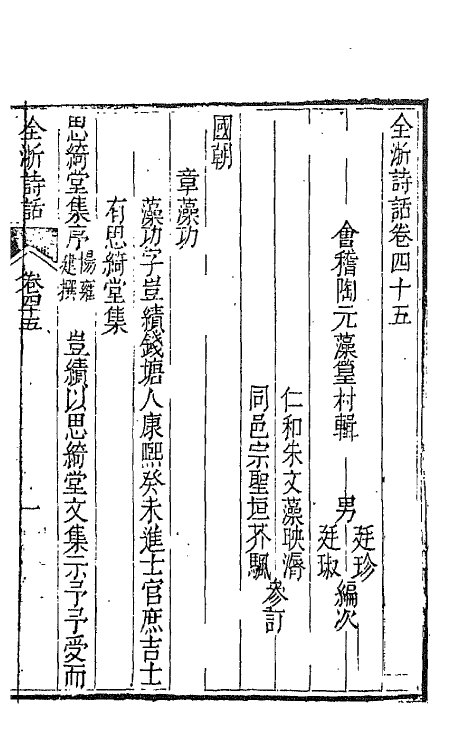 全浙詩話卷四十五
會稽陶元藻篁村輯　男廷珍廷琡編次
仁和朱文藻映漘
同邑宗聖垣芥颿
參訂
國朝
章藻功
藻功字豈績錢塘人康熙癸未進士官庶吉士
有思綺堂集
思綺堂集序楊雍建撰　豈績以思綺堂文集示予予受而
全浙詩話　卷四十五　一